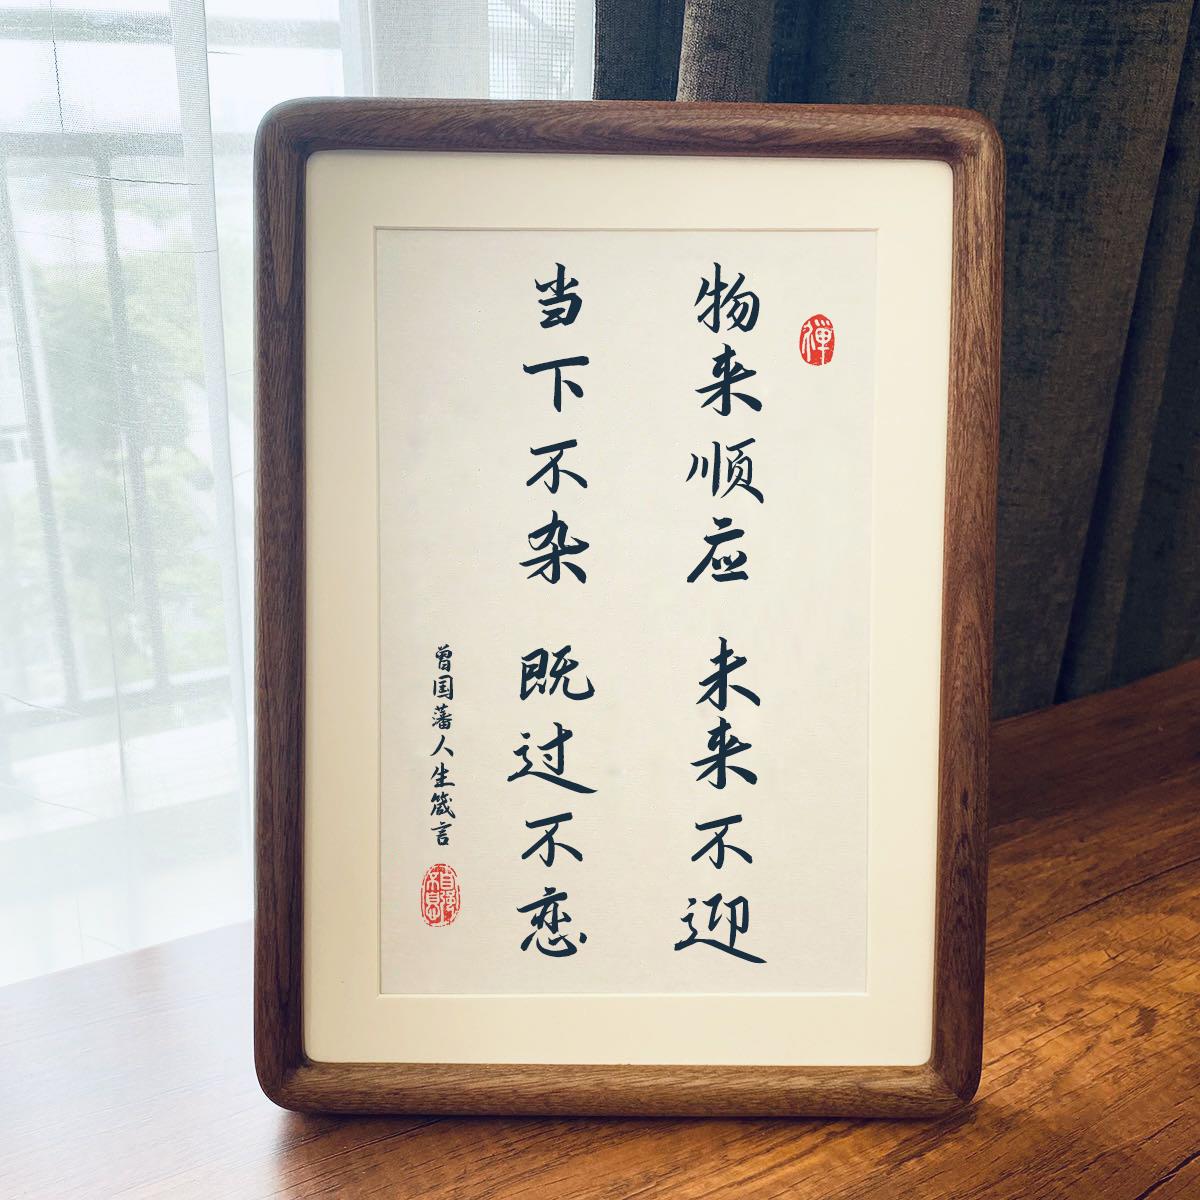 禅
物来顺应 未来不迎
当下不杂 既过不恋
曾国藩人生箴言